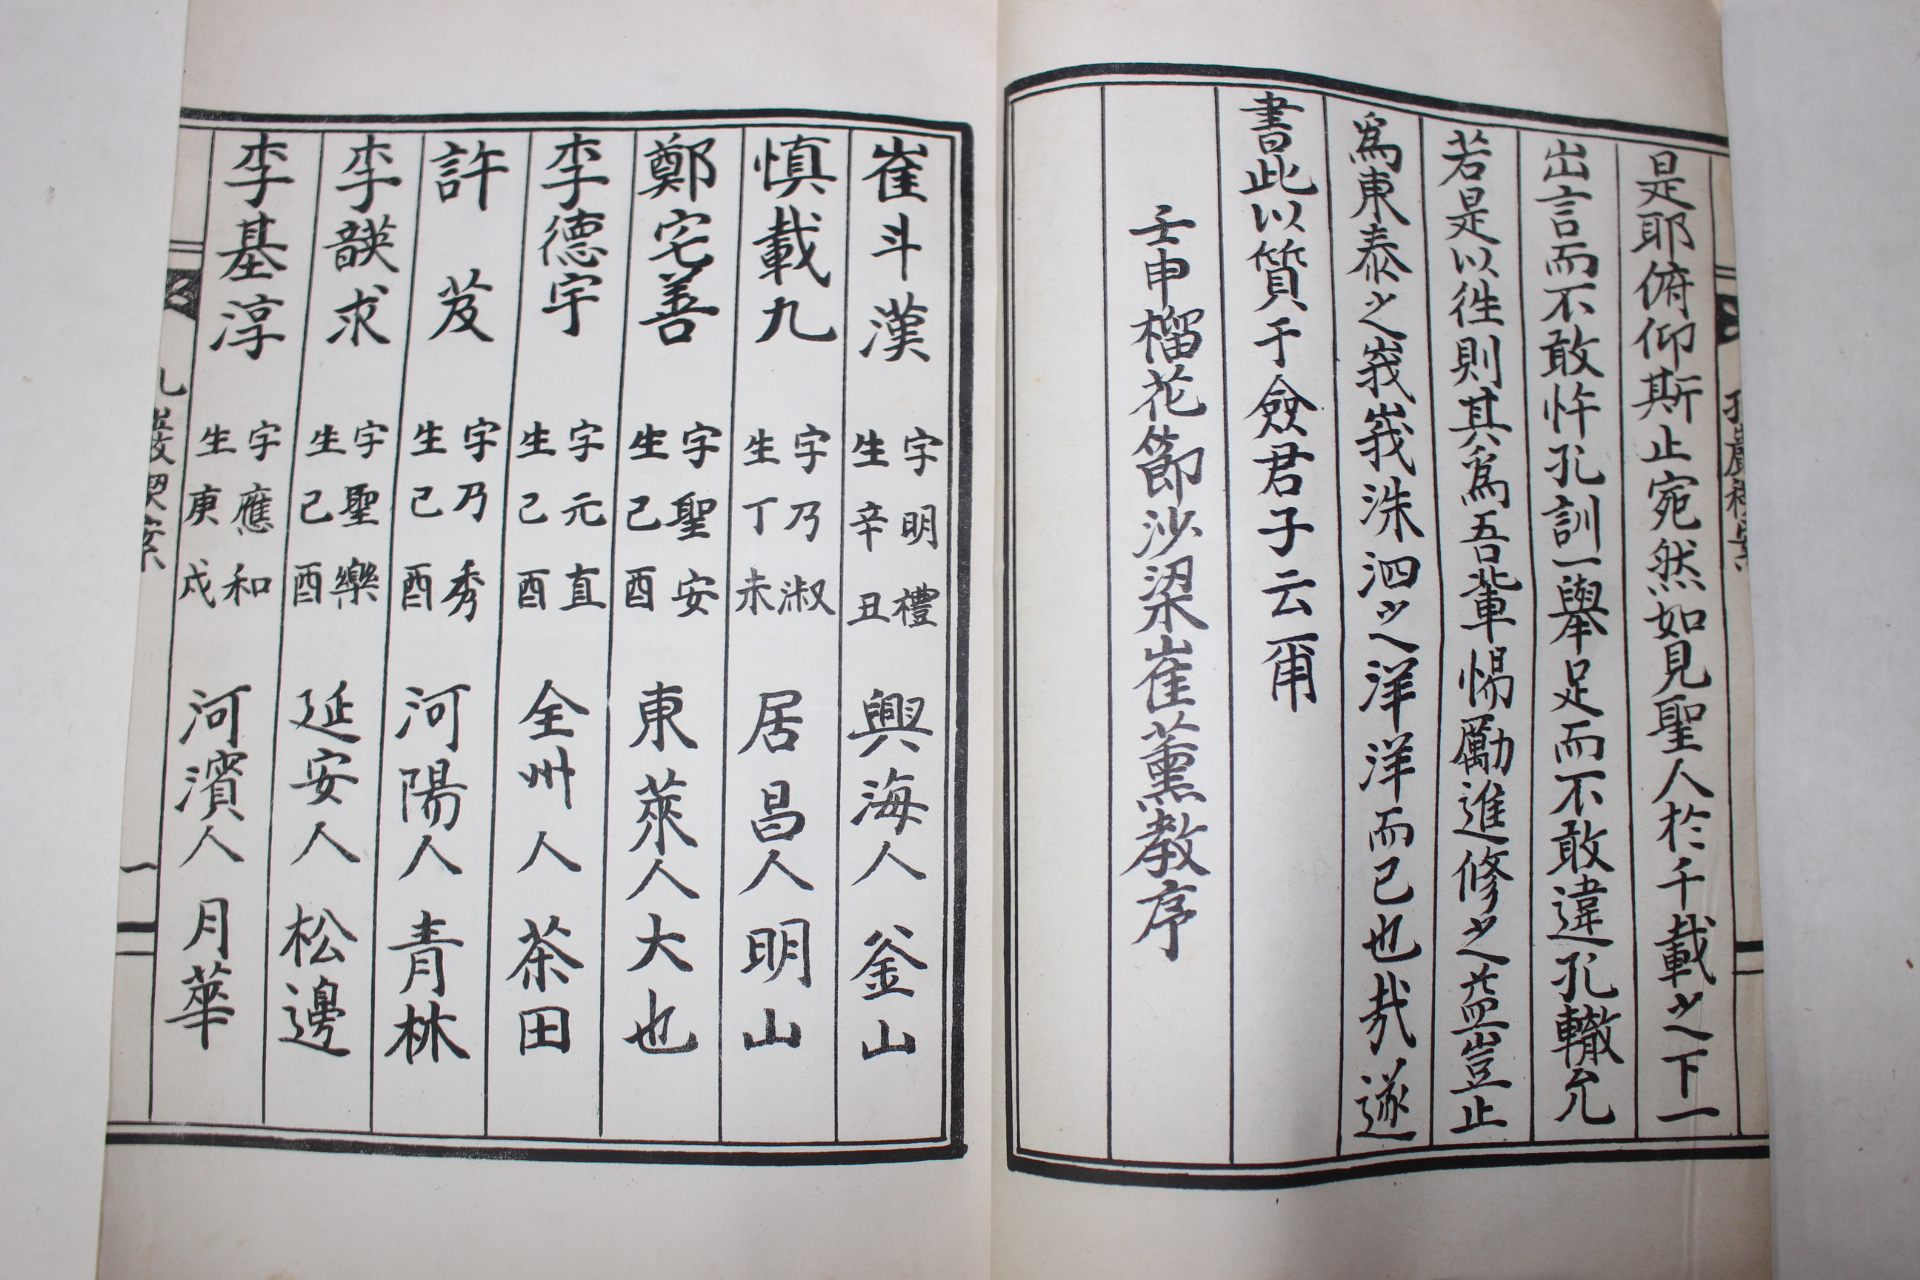 是耶俯仰斯止宛然如見聖人於千載之下一
出言而不敢忤孔訓一擧足而不敢違孔轍允
若是以往則其爲吾輩惕勵進修之益豈止
爲東泰之峩峩洙泗之洋洋而已也哉遂
書此以質于僉君子云爾
壬申榴花節沙梁崔薰教序
崔斗漢 字明禮 生辛丑 興海人 釜山
愼載九 字乃淑 生丁未 居昌人 明山
鄭宅善 字聖安 生己酉 東萊人 大也
李德宇 字元直 生己酉 全州人 茶田
許 芨 字乃秀 生己酉 河陽人 青林
李韺求 字聖樂 生己酉 延安人 松邊
李基淳 字應和 生庚戌 河濱人 月華
一